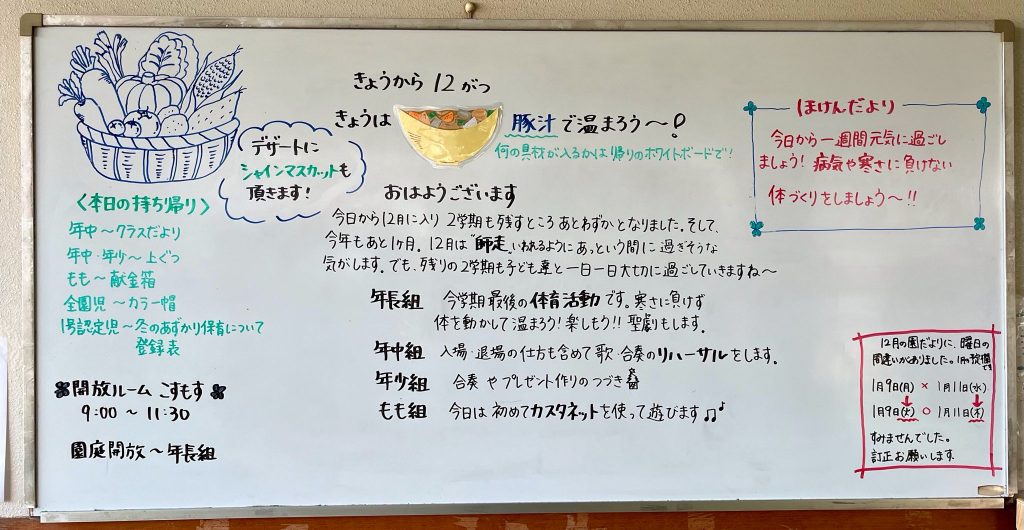 きょうから 12がつ
きょうは 豚汁で温まろう〜!
何の具材が入るかは帰りのホワイトボードで!
デザートに
シャインマスカットも
頂きます!
ほけんだより
今日から一週間元気に過ごし
ましょう! 病気や寒さに負けない
体づくりをしましょう〜!!
おはようございます
今日から12月に入り 2学期も残すところ あとわずかとなりました。そして、
今年もあと1ヶ月。12月は"師走"といわれるように あっという間に過ぎそうな
気がします。でも、残りの2学期も子ども達と一日一日大切に過ごしていきますね〜
〈本日の持ち帰り〉
年中〜クラスだより
年中・年少〜上ぐつ
もも〜献金箱
全園児〜カラー帽
1号認定児〜冬のあずかり保育について
登録表
開放ルーム こすもす
9:00〜11:30
園庭開放〜年長組
年長組 今学期最後の体育活動です。寒さに負けず
体を動かして温まろう! 楽しもう!! 聖劇もします。
年中組 入場・退場の仕方も含めて歌・合奏のリハーサルをします。
年少組 合奏やプレゼント作りのつづき
もも組 今日は初めてカスタネットを使って遊びます♫♪
12月の園だよりに、曜日の
間違いがありました。1月の予定欄です
1月9日(月) × 1月11日(水)
1月9日(火) ○ 1月11日(木)
すみませんでした。
訂正お願いします。